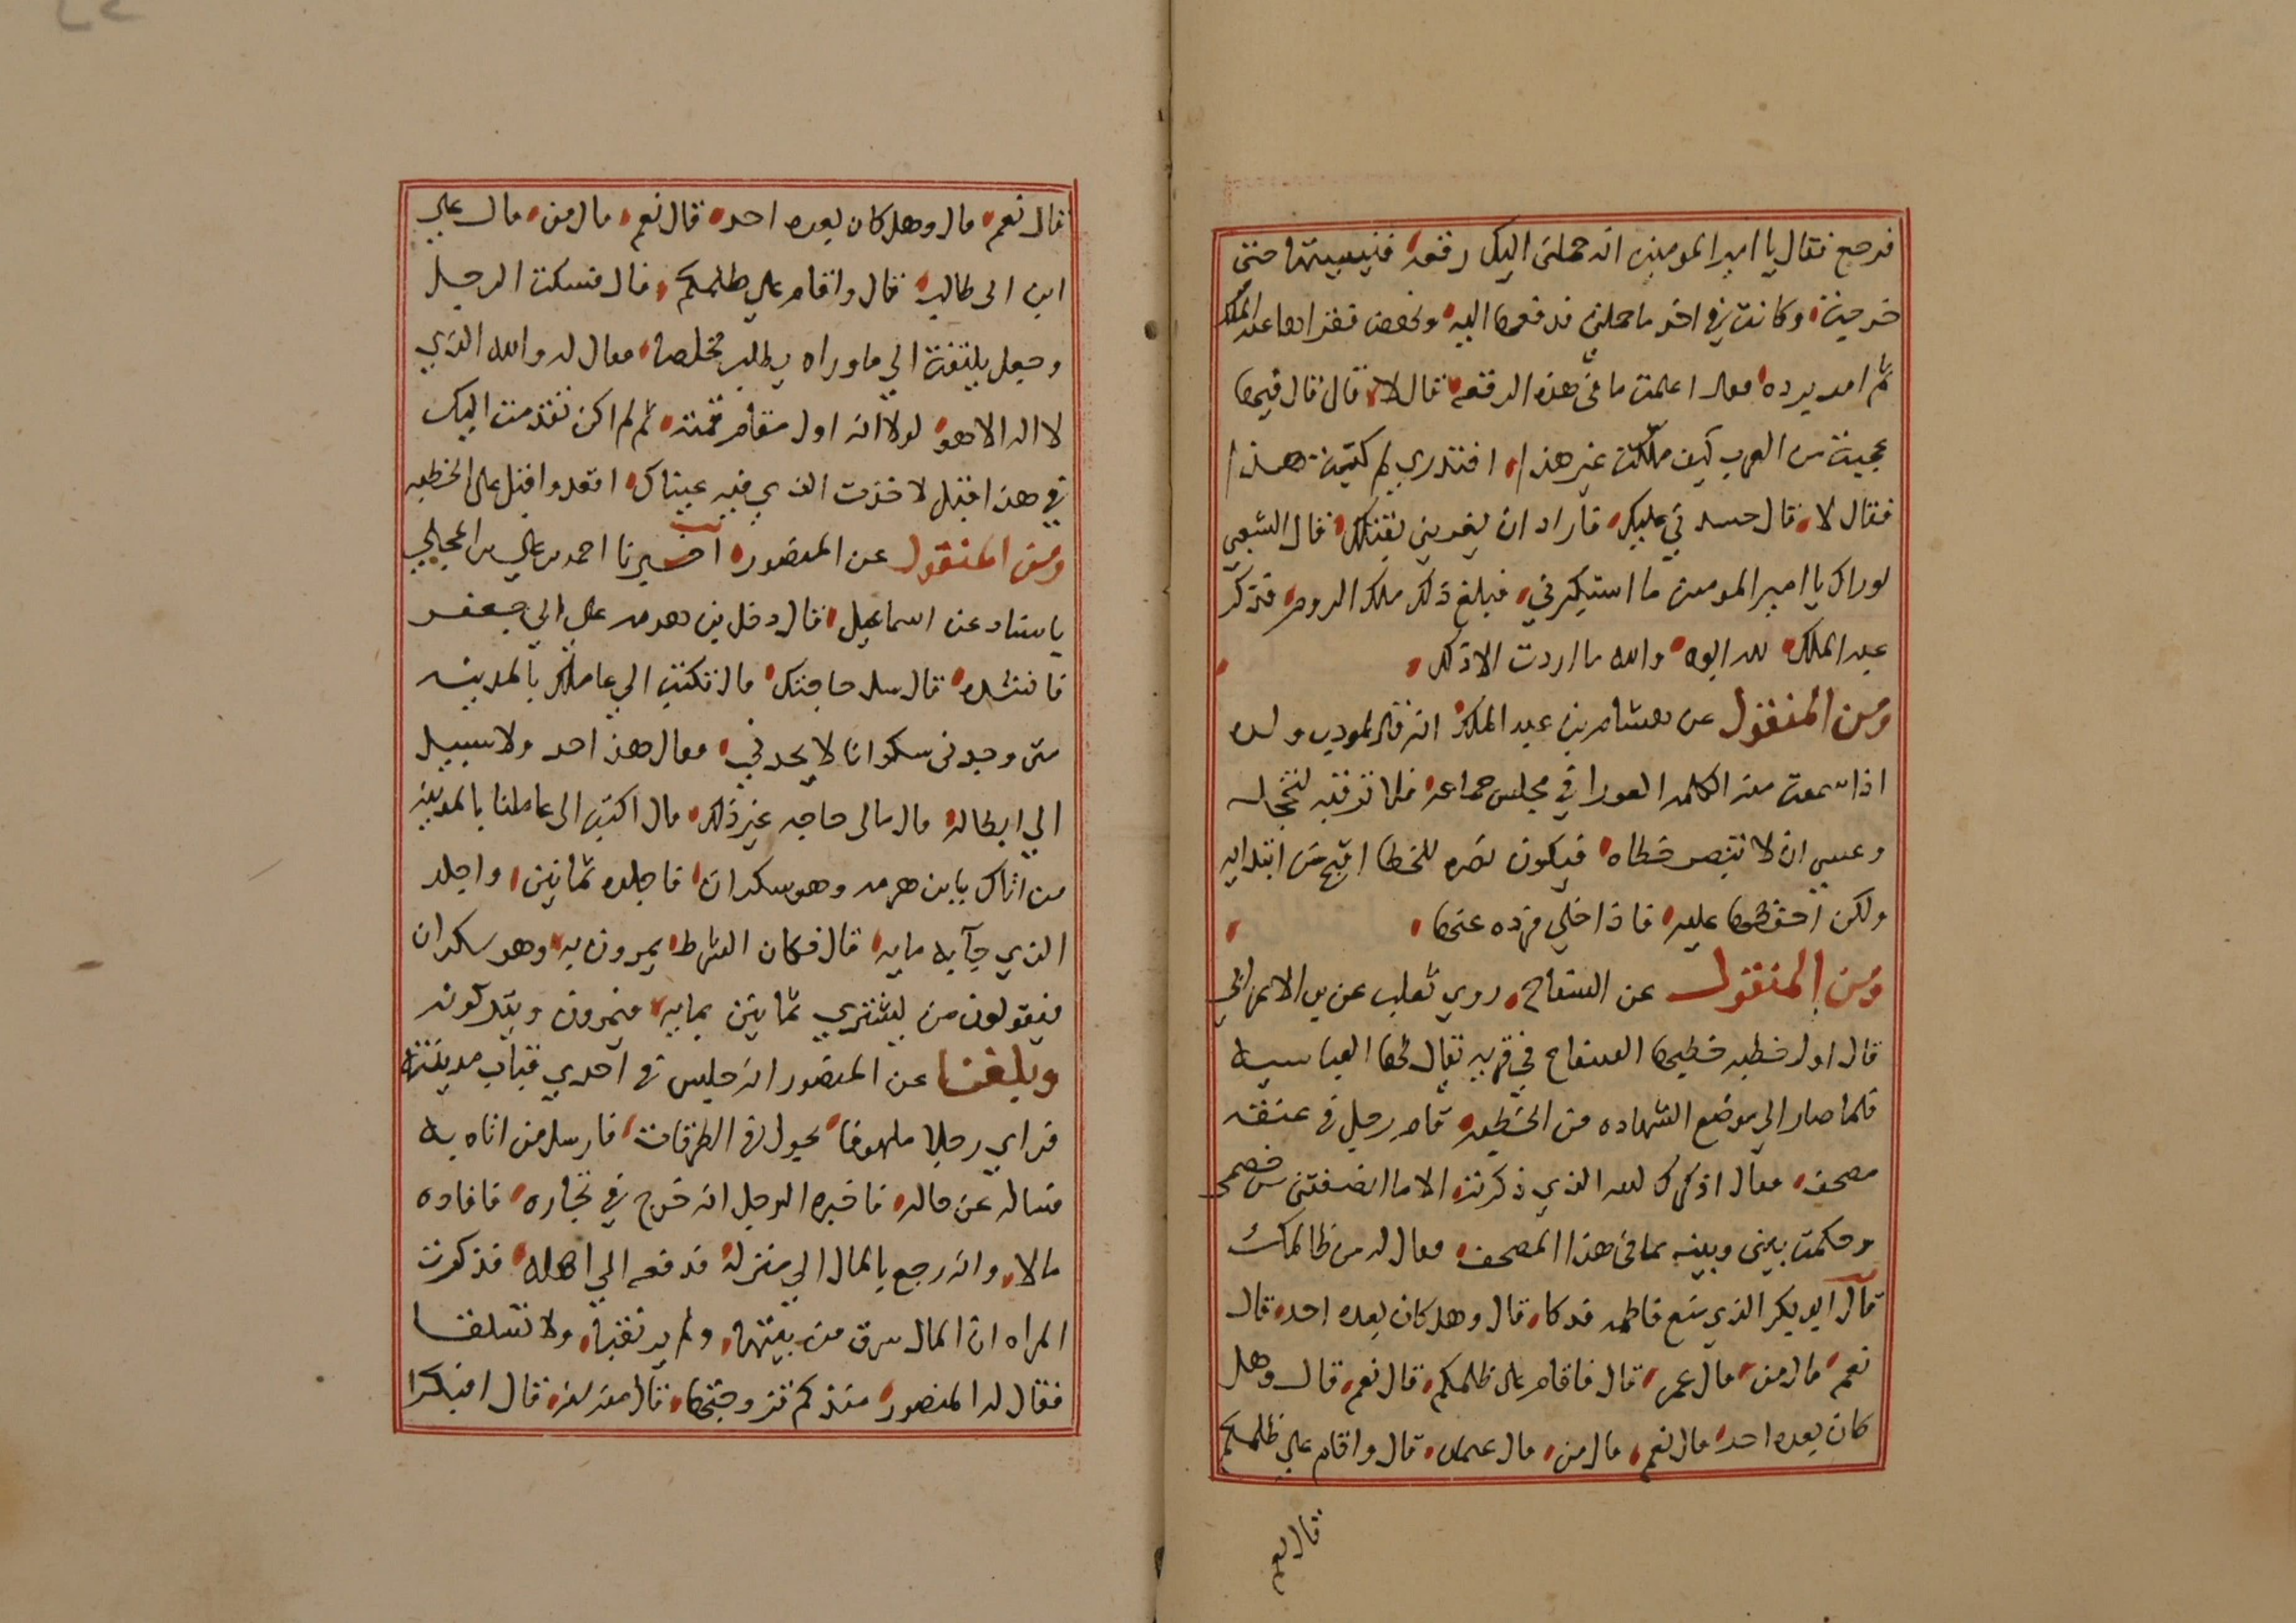 فرجع فقال يا امير المومنين انه حملني اليك رقعه فنسيتها حتى
خرجت وكانت في اخر ما حملني فدفعها اليه ونهض فقراها عبد الملك
ثم امر برده فقال اعلمت ما في هذه الرقعه قال لا قال قال فيها
عجبت من العرب كيف ملكت غير هذا افتدري لم كتب هذا
فقال لا قال حسدني عليك فاراد ان يغريني بقتلك فقال الشعبي
لو راك يا امير المومنين ما استكبرني فبلغ ذلك ملك الروم فذكر
عبد الملك لله ابوه والله ما اردت الا ذلك
ومن المنقول عن هشام بن عبد الملك انه قال لمودب ولده
اذا سمعت منه الكلمه العورا في مجلس جماعه فلا تونبه لتخجله
وعسى ان لا ينصر خطاه فيكون نصره للخطا اقبح من ابتدايه
ولكن احفظها عليه فاذا خلي فرده عنها
ومن المنقول عن السفاح روي ثعلب عن بن الاعرابي
قال اول خطبه خطبها السفاح في قريه يقال لها العباسيه
فلما صار الي موضع الشهاده من الخطبه قام رجل في عنقه
مصحف فقال اذكرك الله الذي ذكرته الا ما انصفتني من خصمي
وحكمت بيني وبينه بما في هذا المصحف فقال له من ظالمك
قال ابو بكر الذي منع فاطمه فدكا قال وهل كان بعده احد قال
نعم قال من قال عمر قال فاقام على ظلمكم قال نعم قال وهل
كان بعده احد قال نعم قال من قال عثمان قال واقام علي ظلمكم
قال نعم
قال نعم قال وهل كان بعده احد قال نعم قال من قال علي
ابن ابي طالب قال واقام علي ظلمكم قال فسكت الرجل
وجعل يلتفت الي ما وراه يطلب مخلصا فقال له والله الذي
لا اله الا هو لولا انه اول مقام قمته ثم لم اكن تقدمت اليك
في هذا قبل لاخذت الذي فيه عيناك اقعد واقبل على الخطبه
ومن المنقول عن المنصور اخبرنا احمد بن علي بن المجلي
باسناد عن اسماعيل قال دخل بن هرمه على ابي جعفر
فانشده قال سل حاجتك قال تكتب الي عاملك بالمدينه
متى وجدني سكرانا لا يحدني فقال هذا حد ولا سبيل
الي ابطاله قال مالي حاجه غير ذلك قال اكتب الى عاملنا بالمدينه
من اتاك بابن هرمه وهو سكران فاجلده ثمانين واجلد
الذي جآ به مايه قال فكان الشرط يمرون به وهو سكران
فيقولون من يشتري ثمانين بمايه فيمرون ويتركونه
وبلغنا عن المنصور انه جلس في احدي قباب مدينته
فراي رجلا ملهوفا يجول في الطرقات فارسل من اتاه به
فساله عن حاله فاخبره الرجل انه خرج في تجاره فافاده
مالا وانه رجع بالمال الي منزله فدفعه الي اهله فذكرت
المراه ان المال سرق من بيتها ولم ير نقبا ولا تسلقا
فقال له المنصور منذ كم تزوجتها قال منذ سنه قال افبكرا